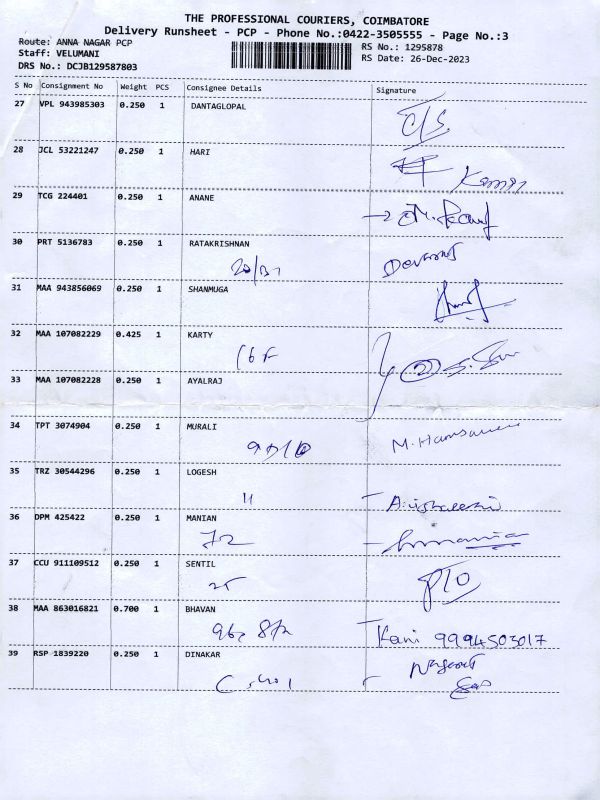 THE PROFESSIONAL COURIERS, COIMBATORE
Delivery Runsheet - PCP - Phone No.:0422-3505555 - Page No.:3
Route: ANNA NAGAR PCP
Staff: VELUMANI
DRS No.: DCJB129587803
RS No.: 1295878
RS Date: 26-Dec-2023
S No Consignment No Weight PCS Consignee Details Signature
27 VPL 943985303 0.250 1 DANTAGLOPAL
28 JCL 53221247 0.250 1 HARI
29 TCG 224401 0.250 1 ANANE
30 PRT 5136783 0.250 1 RATAKRISHNAN
31 MAA 943856069 0.250 1 SHANMUGA
32 MAA 107082229 0.425 1 KARTY
33 MAA 107082228 0.250 1 AYALRAJ
34 TPT 3074904 0.250 1 MURALI
35 TRZ 30544296 0.250 1 LOGESH
11
36 DPM 425422 0.250 1 MANIAN
72
37 CCU 911109512 0.250 1 SENTIL
38 MAA 863016821 0.700 1 BHAVAN
Kani 9994503017
39 RSP 1839220 0.250 1 DINAKAR